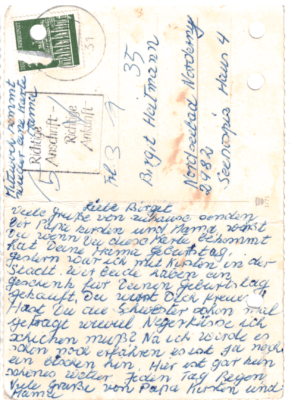 Mittwoch kommt
wieder eine Karte
Mama
31
Richtige
Anschrift -
Richtige
Auskunft -
Birgit Heitmann 35
Nordseebad Norderney
2982
Seehospiz Haus 4
Liebe Birgit
Viele Grüße von zuhause senden
Dir Papa Kirsten und Mama. Weißt
Du wenn Du diese Karte bekommst
hat Deine Mama Geburtstag.
gestern war ich mit Kirsten in der
Stadt. Wir beide haben ein
geschenk für Deinen Geburtstag
gekauft, Du wirst Dich freuen!
Hast Du die Schwester schon mal
gefragt wieviel Negerküsse ich
schicken muß? Na ich würde es
schon noch erfahren es ist ja noch
ein bischen hin. Hier ist gar kein
schönes wetter. Jeden Tag Regen
Viele Grüße von Papa Kirsten und
Mama